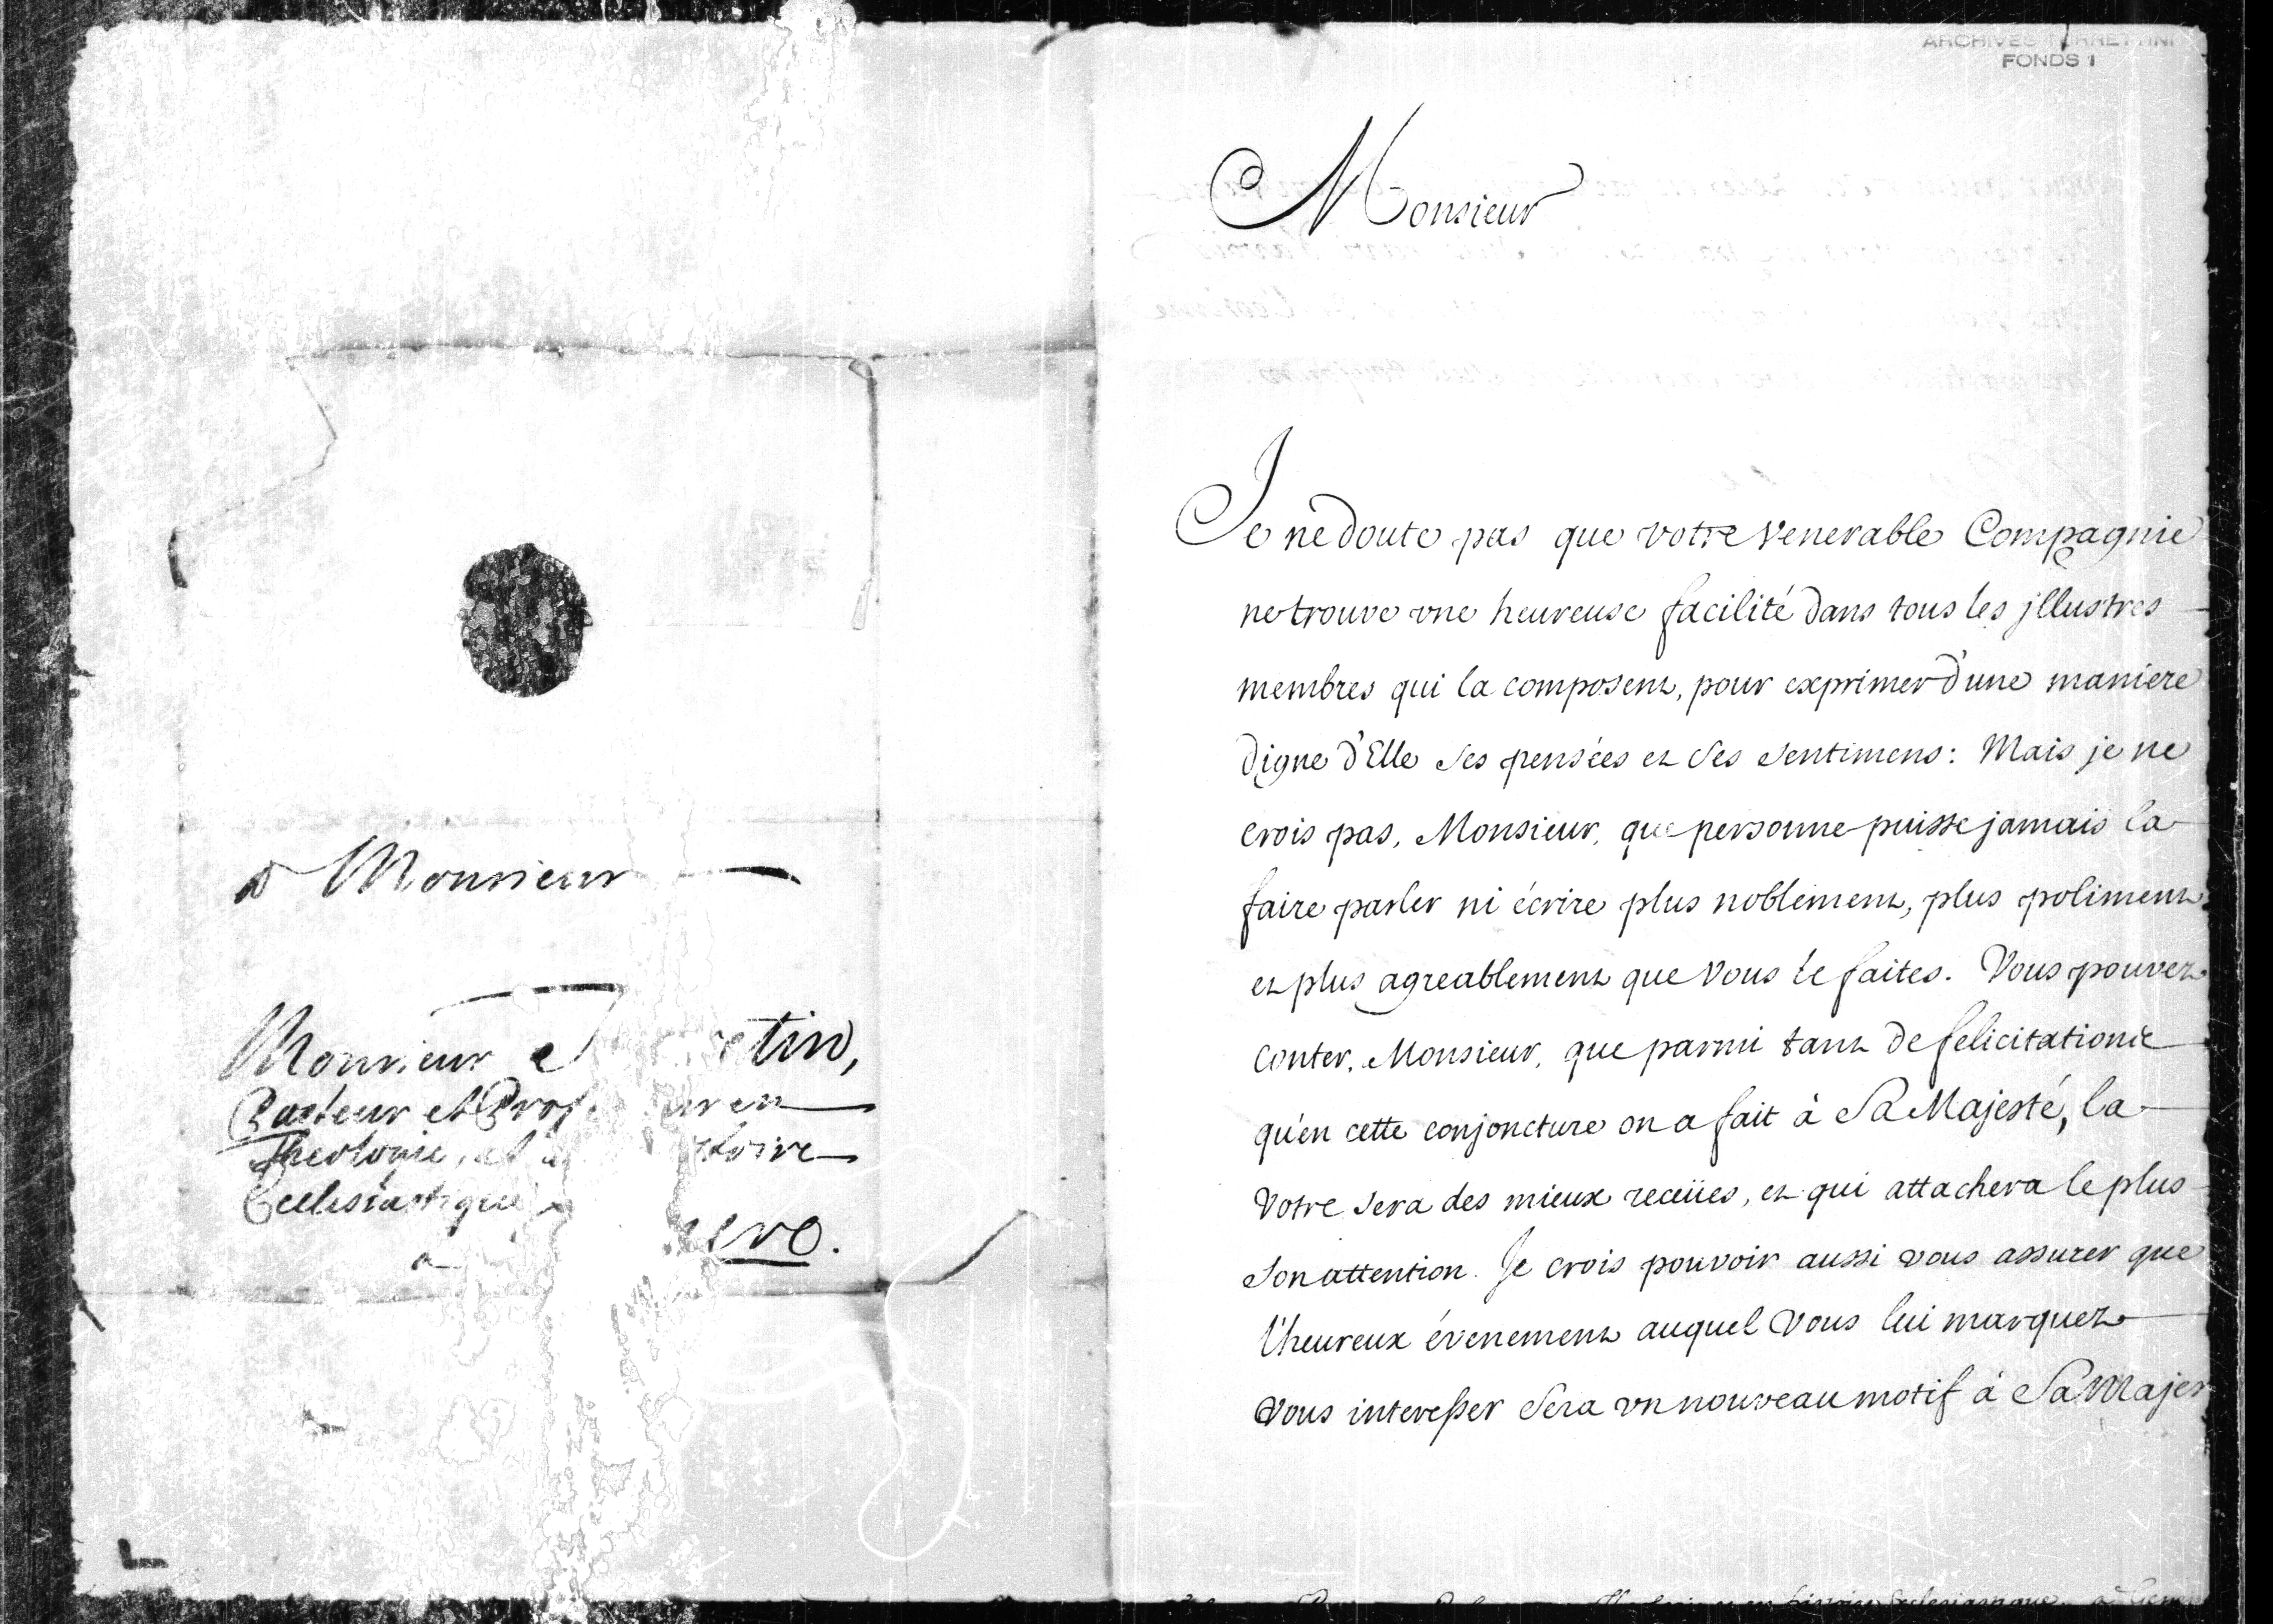 a Monsieur
Monsieur
Pasteur et
Theologie,
Ecclesiastique
a
ARCHIVES TURRETTINI
FONDS 1
Monsieur
Je ne doute pas que votre venerable Compagnie
ne trouve vne heureuse facilité dans tous les jllustres
membres qui la composent, pour exprimer d'une maniere
digne d'Elle ses pensées et ses sentimens: Mais je ne
crois pas, Monsieur, que personne puisse jamais la
faire parler ni écrire plus noblement, plus poliment
et plus agreablement que vous le faites. Vous pouvez
conter, Monsieur, que parmi tant de felicitations
qu'en cette conjoncture on a fait à Sa Majesté, la
votre sera des mieux receües, et qui attachera le plus
son attention. Je crois pouvoir aussi vous assurer que
l'heureux évenement auquel vous lui marquez
vous interesser sera vn nouveau motif à Sa Majes